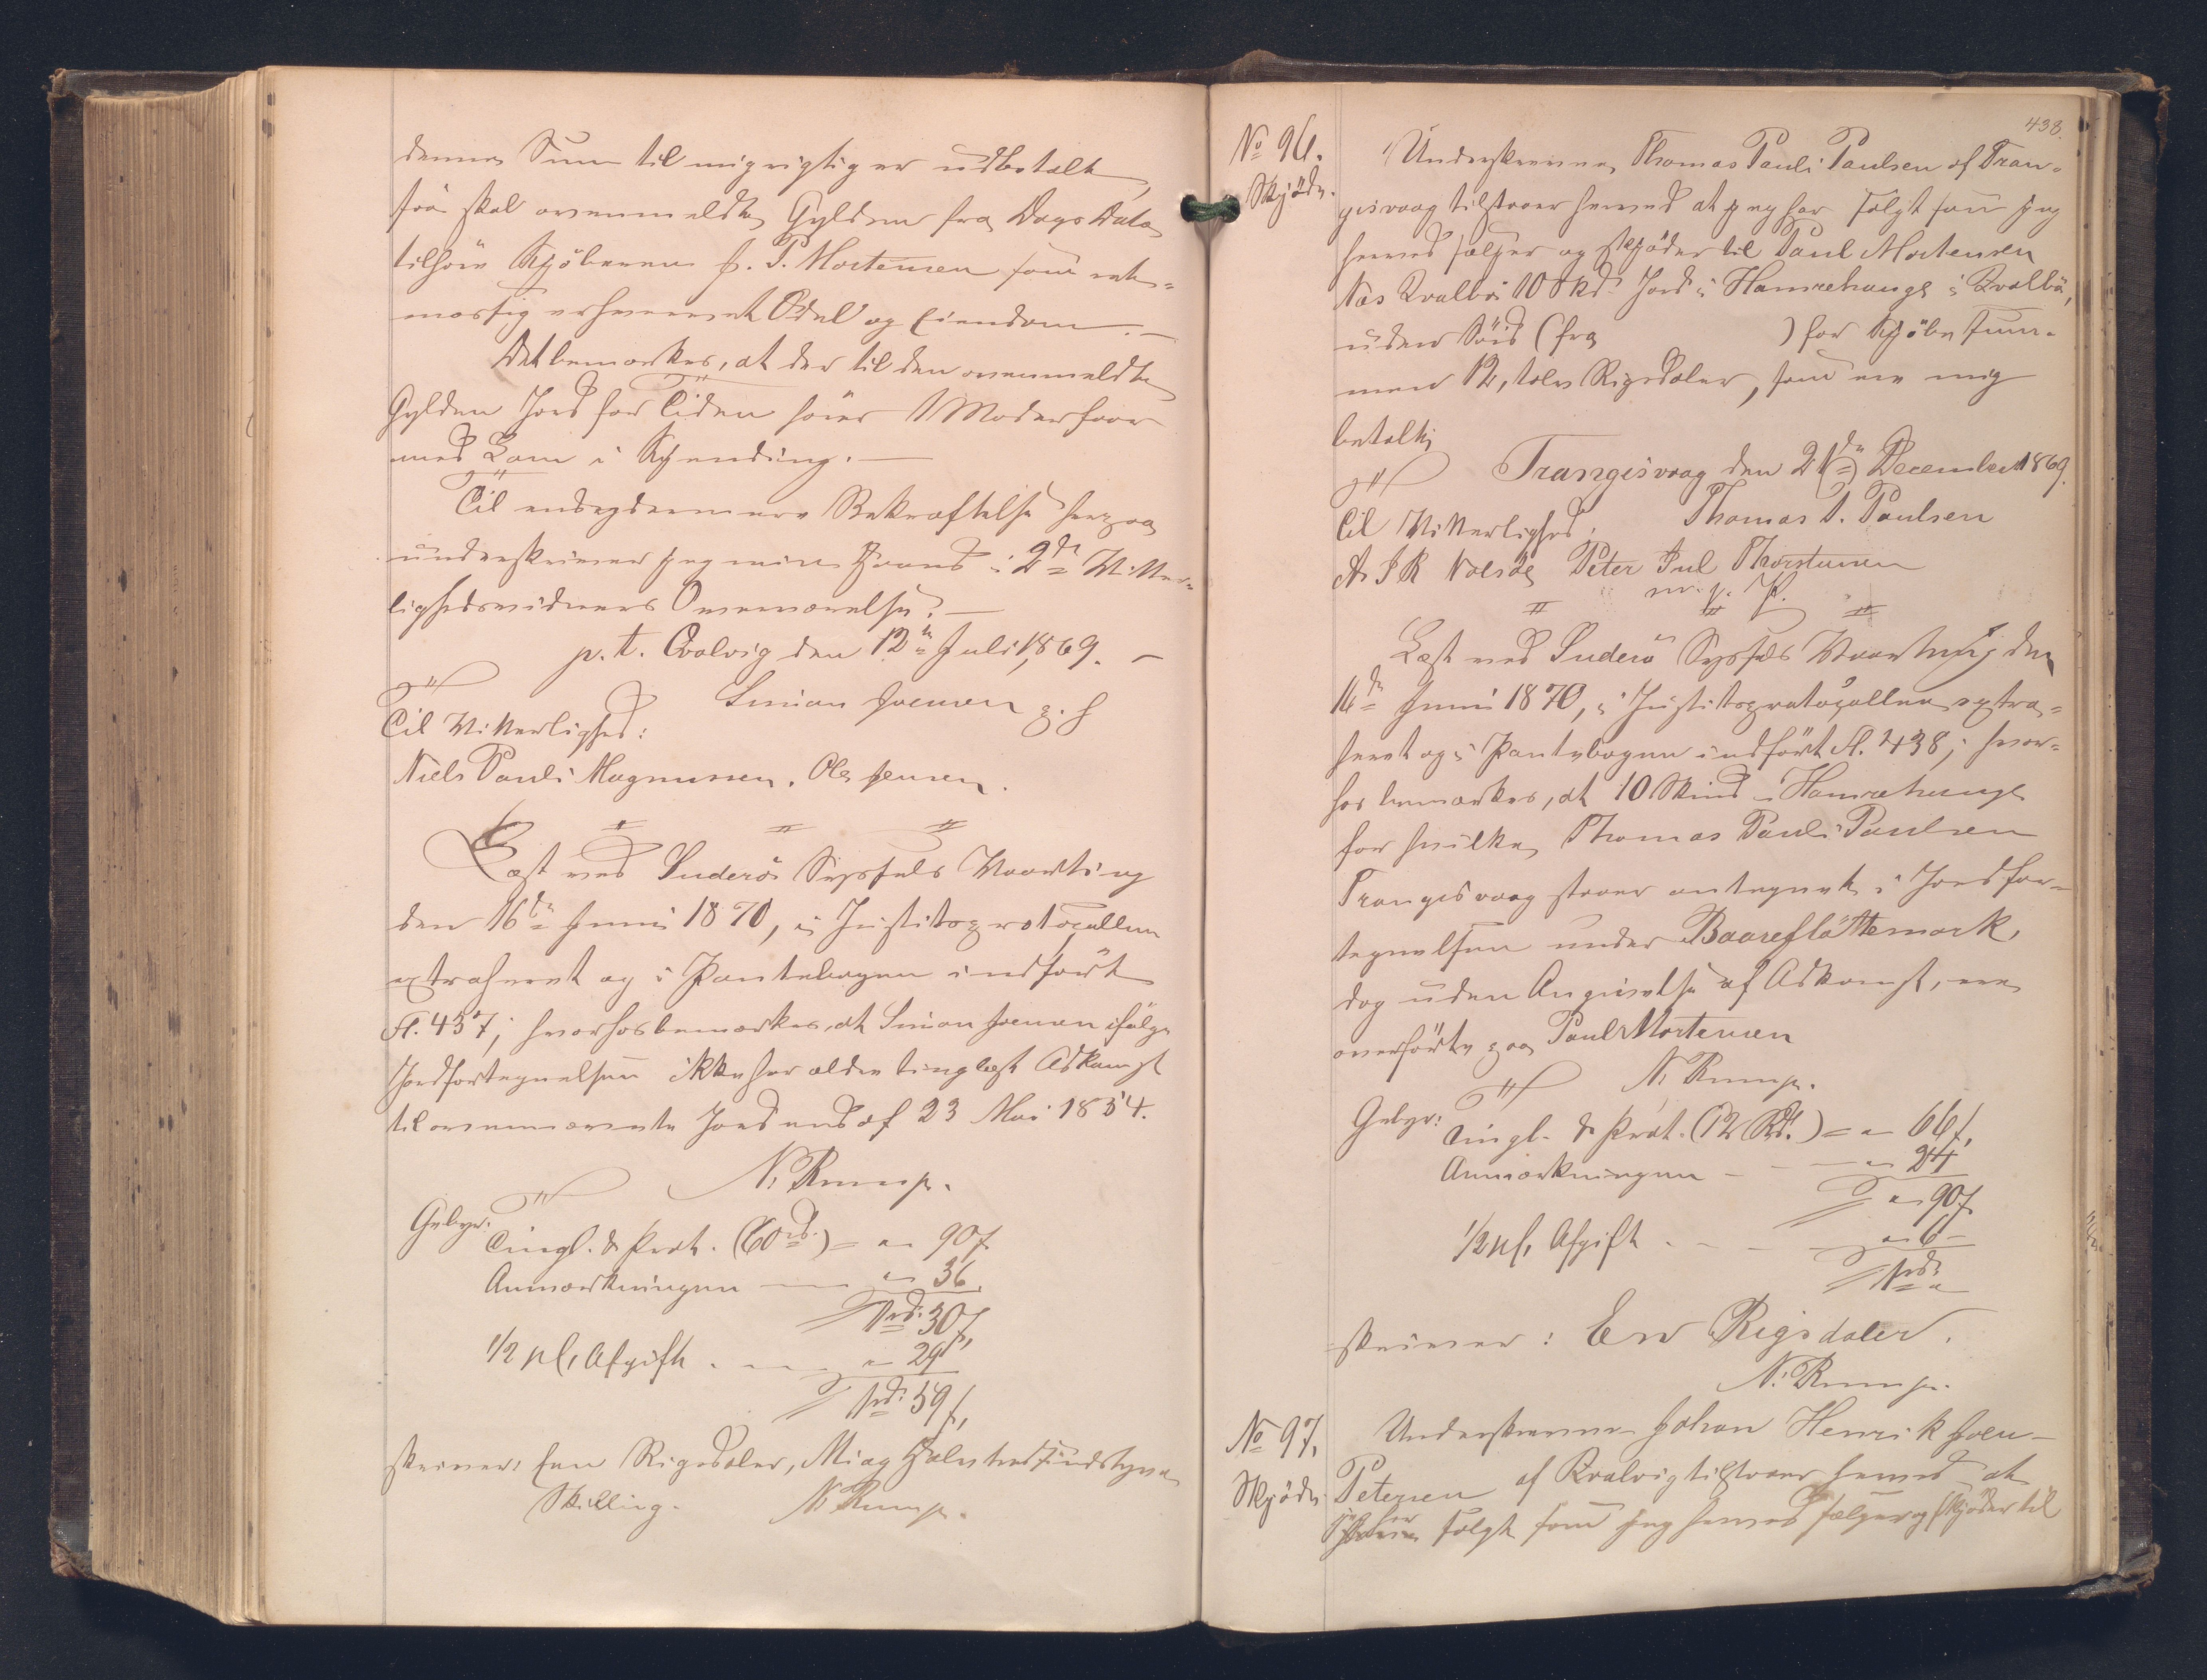 denne Sum til mig rigtig er udbetalt,
saa skal ovenmeldte Gylden fra Dags Dato
tilhöre Kjöberen J. P. Mortensen som ret-
mæssig erhvervet Odel og Eiendom. —
Det bemærkes, at der til den ovenmeldte
Gylden Jord for Tiden hörer 1 Moderfaar
med Lam i Kjending. —
Til end ydermere Bekræftelse herpaa
underskriver jeg min Haand i 2de Vitter-
lighedsvidners Overværelse. —
p. t. Qvalvig den 12te Juli 1869. —
Simon Joensen
Til Vitterlighed:
Niels Pauli Magnussen. Ole Jensen.
Læst ved Suderö Syssels Vaarting
den 16de Juni 1870, i Justitsprotocollen
extraheret og i Pantebogen indfört
Fl. 437; hvorhos bemærkes, at Simon Joensen ifölge
Jordfortegnelsen ikke har ældre tinglæst Adkomst
til ovennævnte Jord end af 23 Mai 1854.
N. Rump.
Gebyr:
Tingl. & Prot. (60 rd.) = " 90 s.
Anmærkningen — " 36
1 rd. 30 s,
1/2 pCt Afgift . — " 29
1 rd. 59 s,
skriver: Een Rigsdaler, Ni og Halvtredsindstyve
Skilling. N. Rump.
438.
No 96.
Skjöde.
Underskrevne, Thomas Pauli Paulsen af Tran-
gisvaag tilstaaer herved at jeg har solgt som jeg
herved sælger og skjöder til Paul Mortensen
Næs Qvalbö 10 Skd. Jord i Hamrehauge i Qvalbö,
uden Söid (fra ) for Kjöbesum-
men 12, tolv Rigsdaler, som ere mig
betalte
Trangisvaag den 21de December 1869.
Thomas P. Paulsen
Til Vitterlighed.
A J R Nolsöe Peter Juel Thorsteinsen
m. f. P.
Læst ved Suderö Syssels Vaarting den
16de Juni 1870, i Justitsprotocollen extra-
heret og i Pantebogen indfört Fl. 438; hvor-
hos bemærkes, at 10 Skind i Hamrehauge
for hvilke, Thomas Pauli Paulsen
Trangisvaag staaer antegnet i Jordfor-
tegnelsen under Baareflöttemark,
dog uden Angivelse af Adkomst, ere
overförte paa Paul Mortensen
N. Rump.
Gebyr:
Tingl. & Prot. (12 Rd.) = " 66 s,
Anmærkningen — " 24
" 90 s
1/2 pCt, Afgift . — " 6 —
1 rd. "
skriver: Een Rigsdaler.
N. Rump.
No 97.
Skjöde.
Underskrevne Johan Henrik Joen-
Petersen af Qvalvig tilstaaer herved at
jeg har solgt som jeg herved sælger og skjöder til